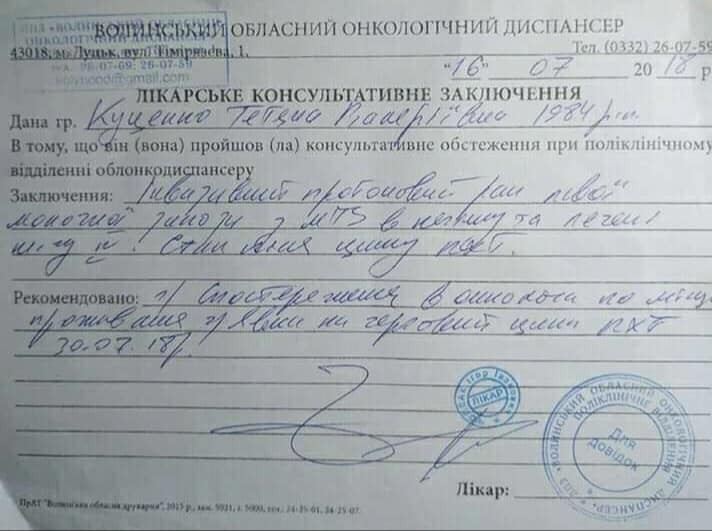 КЗ «ВОЛИНСЬКИЙ ОБЛАСНИЙ
ОНКОЛОГІЧНИЙ ДИСПАНСЕР»
26-07-69; 26-07-59
volynood@gmail.com
ВОЛИНСЬКИЙ ОБЛАСНИЙ ОНКОЛОГІЧНИЙ ДИСПАНСЕР
43018, м. Луцьк, вул. Тімірязєва, 1. Тел. (0332) 26-07-59
"16" 07 2018 р
ЛІКАРСЬКЕ КОНСУЛЬТАТИВНЕ ЗАКЛЮЧЕННЯ
Дана гр. Куценко Тетяна Валеріївна 1984 р.н.
В тому, що він (вона) пройшов (ла) консультативне обстеження при поліклінічному
відділенні облонкодиспансеру
Заключення: Інвазивний протоковий рак лівої
молочної залози з мтs в печінку та легені
IV. Стан після циклу ПХТ.
Рекомендовано: Спостереження в онколога по місцю
проживання явка на черговий цикл ПХТ
30.07.18р.
ЛІКАР
Ігор Іванович
ВОЛИНСЬКИЙ ОБЛАСНИЙ ОНКОЛОГІЧНИЙ ДИСПАНСЕР
ПОЛІКЛІНІЧНЕ ВІДДІЛЕННЯ
Для
довідок
Лікар:
ПрАТ "Волинська обласна друкарня", 2015 р., зам. 5021, т. 5000, тел.: 24-25-01, 24-25-07.